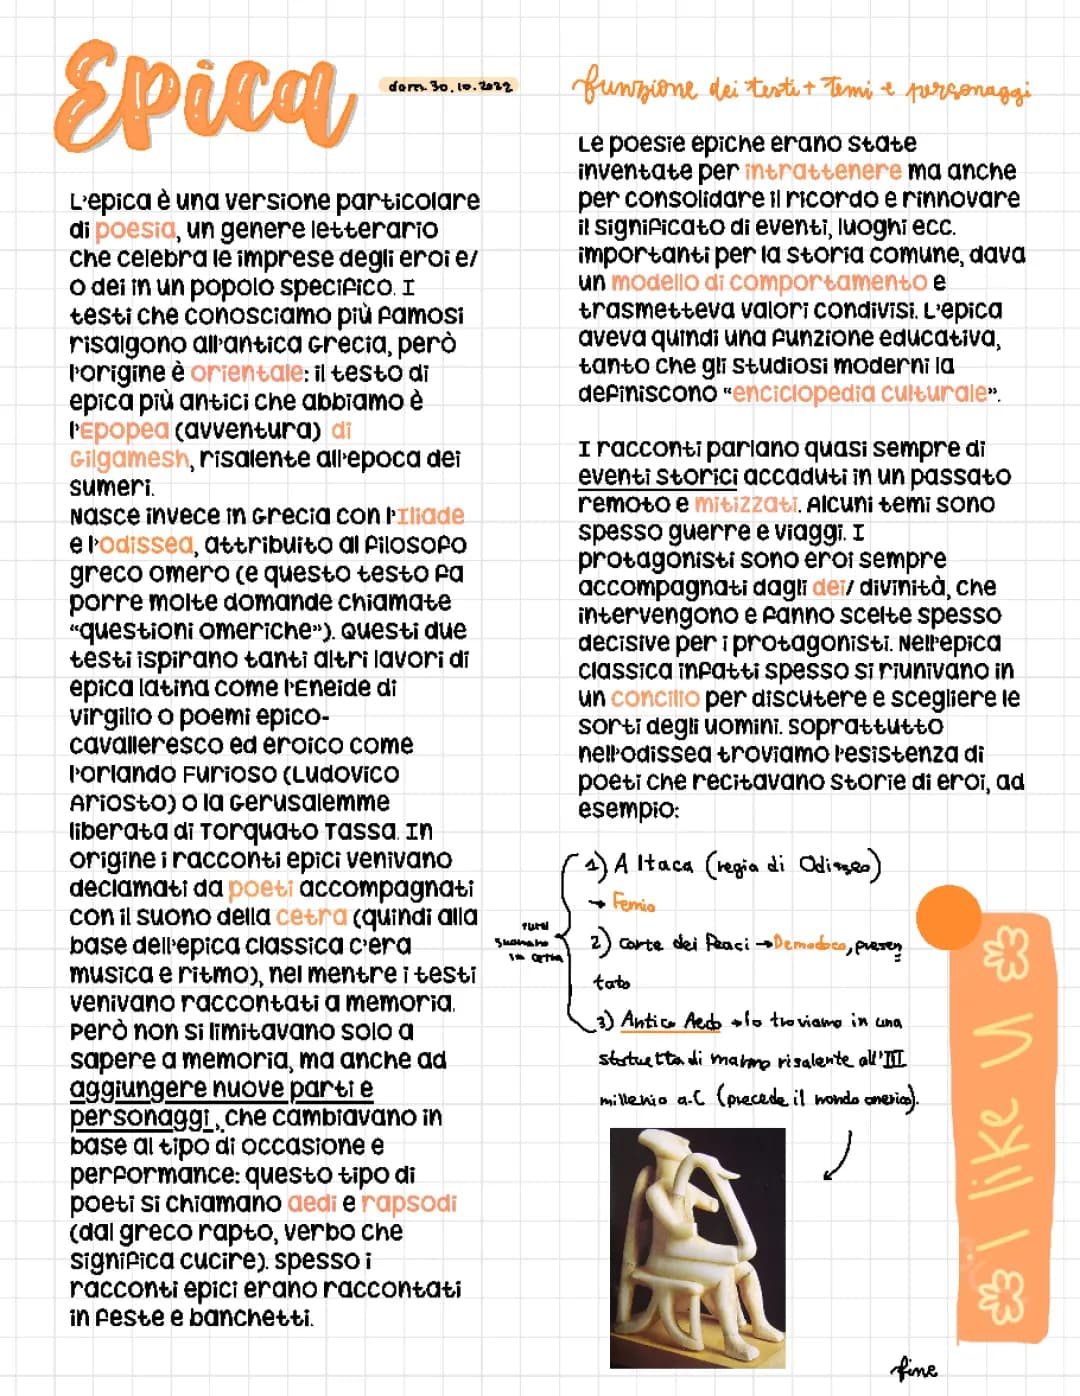 Epica
dom. 30.10.2022
L'epica è una versione particolare
di poesia, un genere letterario
che celebra le imprese degli eroi e/
o dei in un popolo specifico. I
testi che conosciamo più famosi
risalgono all'antica Grecia, però
l'origine è orientale: il testo di
epica più antici che abbiamo è
l'Epopea (avventura) di
Gilgamesh, risalente all'epoca dei
sumeri.
Nasce invece in Grecia con l'Iliade
e l'odissea, attribuito al filosofo
greco omero (e questo testo fa
porre molte domande chiamate
"questioni omeriche"). Questi due
testi ispirano tanti altri lavori di
epica latina come l'Eneide di
virgilio o poemi epico-
cavalleresco ed eroico come
l'orlando Furioso (Ludovico
Ariosto) o la Gerusalemme
liberata di Torquato Tassa. In
origine i racconti epici venivano
declamati da poeti accompagnati
con il suono della cetra (quindi alla
base dell'epica classica c'era
musica e ritmo), nel mentre i testi
venivano raccontati a memoria.
Però non si limitavano solo a
sapere a memoria, ma anche ad
aggiungere nuove parti e
personaggi, che cambiavano in
base al tipo di occasione e
performance: questo tipo di
poeti si chiamano aedi e rapsodi
(dal greco rapto, verbo che
significa cucire). spesso i
racconti epici erano raccontati
in feste e banchetti.
funzione dei testi + temi e personaggi
Le poesie epiche erano state
inventate per intrattenere ma anche
per consolidare il ricordo e rinnovare
il significato di eventi, luoghi ecc.
importanti per la storia comune, dava
un modello di comportamento e
trasmetteva valori condivisi. L'epica
aveva quindi una funzione educativa,
tanto che gli studiosi moderni la
definiscono "enciclopedia culturale".
I racconti parlano quasi sempre di
eventi storici accaduti in un passato
remoto e mitizzati. Alcuni temi sono
spesso guerre e viaggi. I
protagonisti sono eroi sempre
accompagnati dagli dei/ divinità, che
intervengono e fanno scelte spesso
decisive per i protagonisti. Nell'epica
classica infatti spesso si riunivano in
un concilio per discutere e scegliere le
sorti degli uomini. soprattutto
nell'odissea troviamo l'esistenza di
poeti che recitavano storie di eroi, ad
esempio:
1) A Itaca (regia di Odisseo)
→ Femio
2) Corte dei Feaci → Demodoco, presen
tato
3) Antico Aedo → lo troviamo in una
statuetta di marmo risalente all'III
millenio a.C (precede il mondo omerico).
suonano
la cetra
i like U
fine